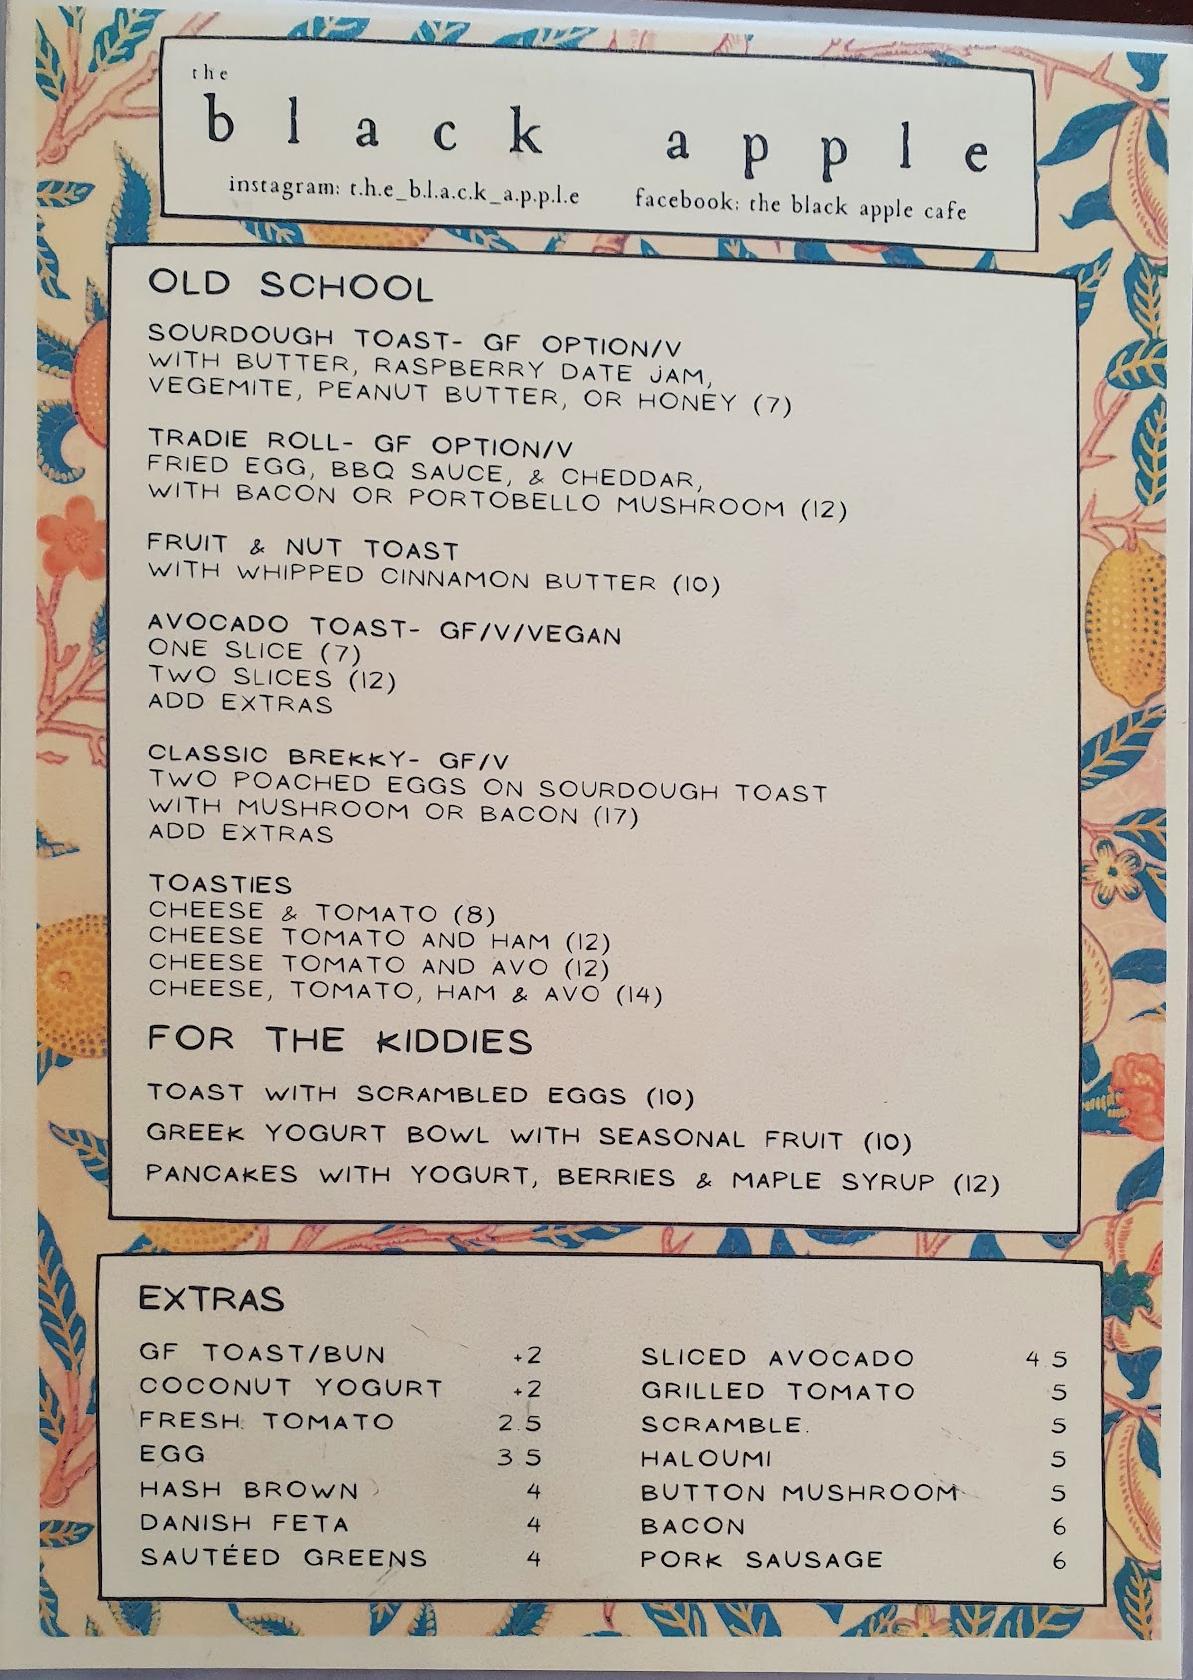 the
black apple
instagram: t.h.e_b.l.a.c.k_a.p.p.l.e facebook: the black apple cafe
OLD SCHOOL
SOURDOUGH TOAST- GF OPTION/V
WITH BUTTER, RASPBERRY DATE JAM,
VEGEMITE, PEANUT BUTTER, OR HONEY (7)
TRADIE ROLL- GF OPTION/V
FRIED EGG, BBQ SAUCE, & CHEDDAR,
WITH BACON OR PORTOBELLO MUSHROOM (12)
FRUIT & NUT TOAST
WITH WHIPPED CINNAMON BUTTER (10)
AVOCADO TOAST- GF/V/VEGAN
ONE SLICE (7)
TWO SLICES (12)
ADD EXTRAS
CLASSIC BREKKY- GF/V
TWO POACHED EGGS ON SOURDOUGH TOAST
WITH MUSHROOM OR BACON (17)
ADD EXTRAS
TOASTIES
CHEESE & TOMATO (8)
CHEESE TOMATO AND HAM (12)
CHEESE TOMATO AND AVO (12)
CHEESE, TOMATO, HAM & AVO (14)
FOR THE KIDDIES
TOAST WITH SCRAMBLED EGGS (10)
GREEK YOGURT BOWL WITH SEASONAL FRUIT (10)
PANCAKES WITH YOGURT, BERRIES & MAPLE SYRUP (12)
EXTRAS
GF TOAST/BUN +2
COCONUT YOGURT +2
FRESH TOMATO 2.5
EGG 3.5
HASH BROWN 4
DANISH FETA 4
SAUTÉED GREENS 4
SLICED AVOCADO 4.5
GRILLED TOMATO 5
SCRAMBLE 5
HALOUMI 5
BUTTON MUSHROOM 5
BACON 6
PORK SAUSAGE 6